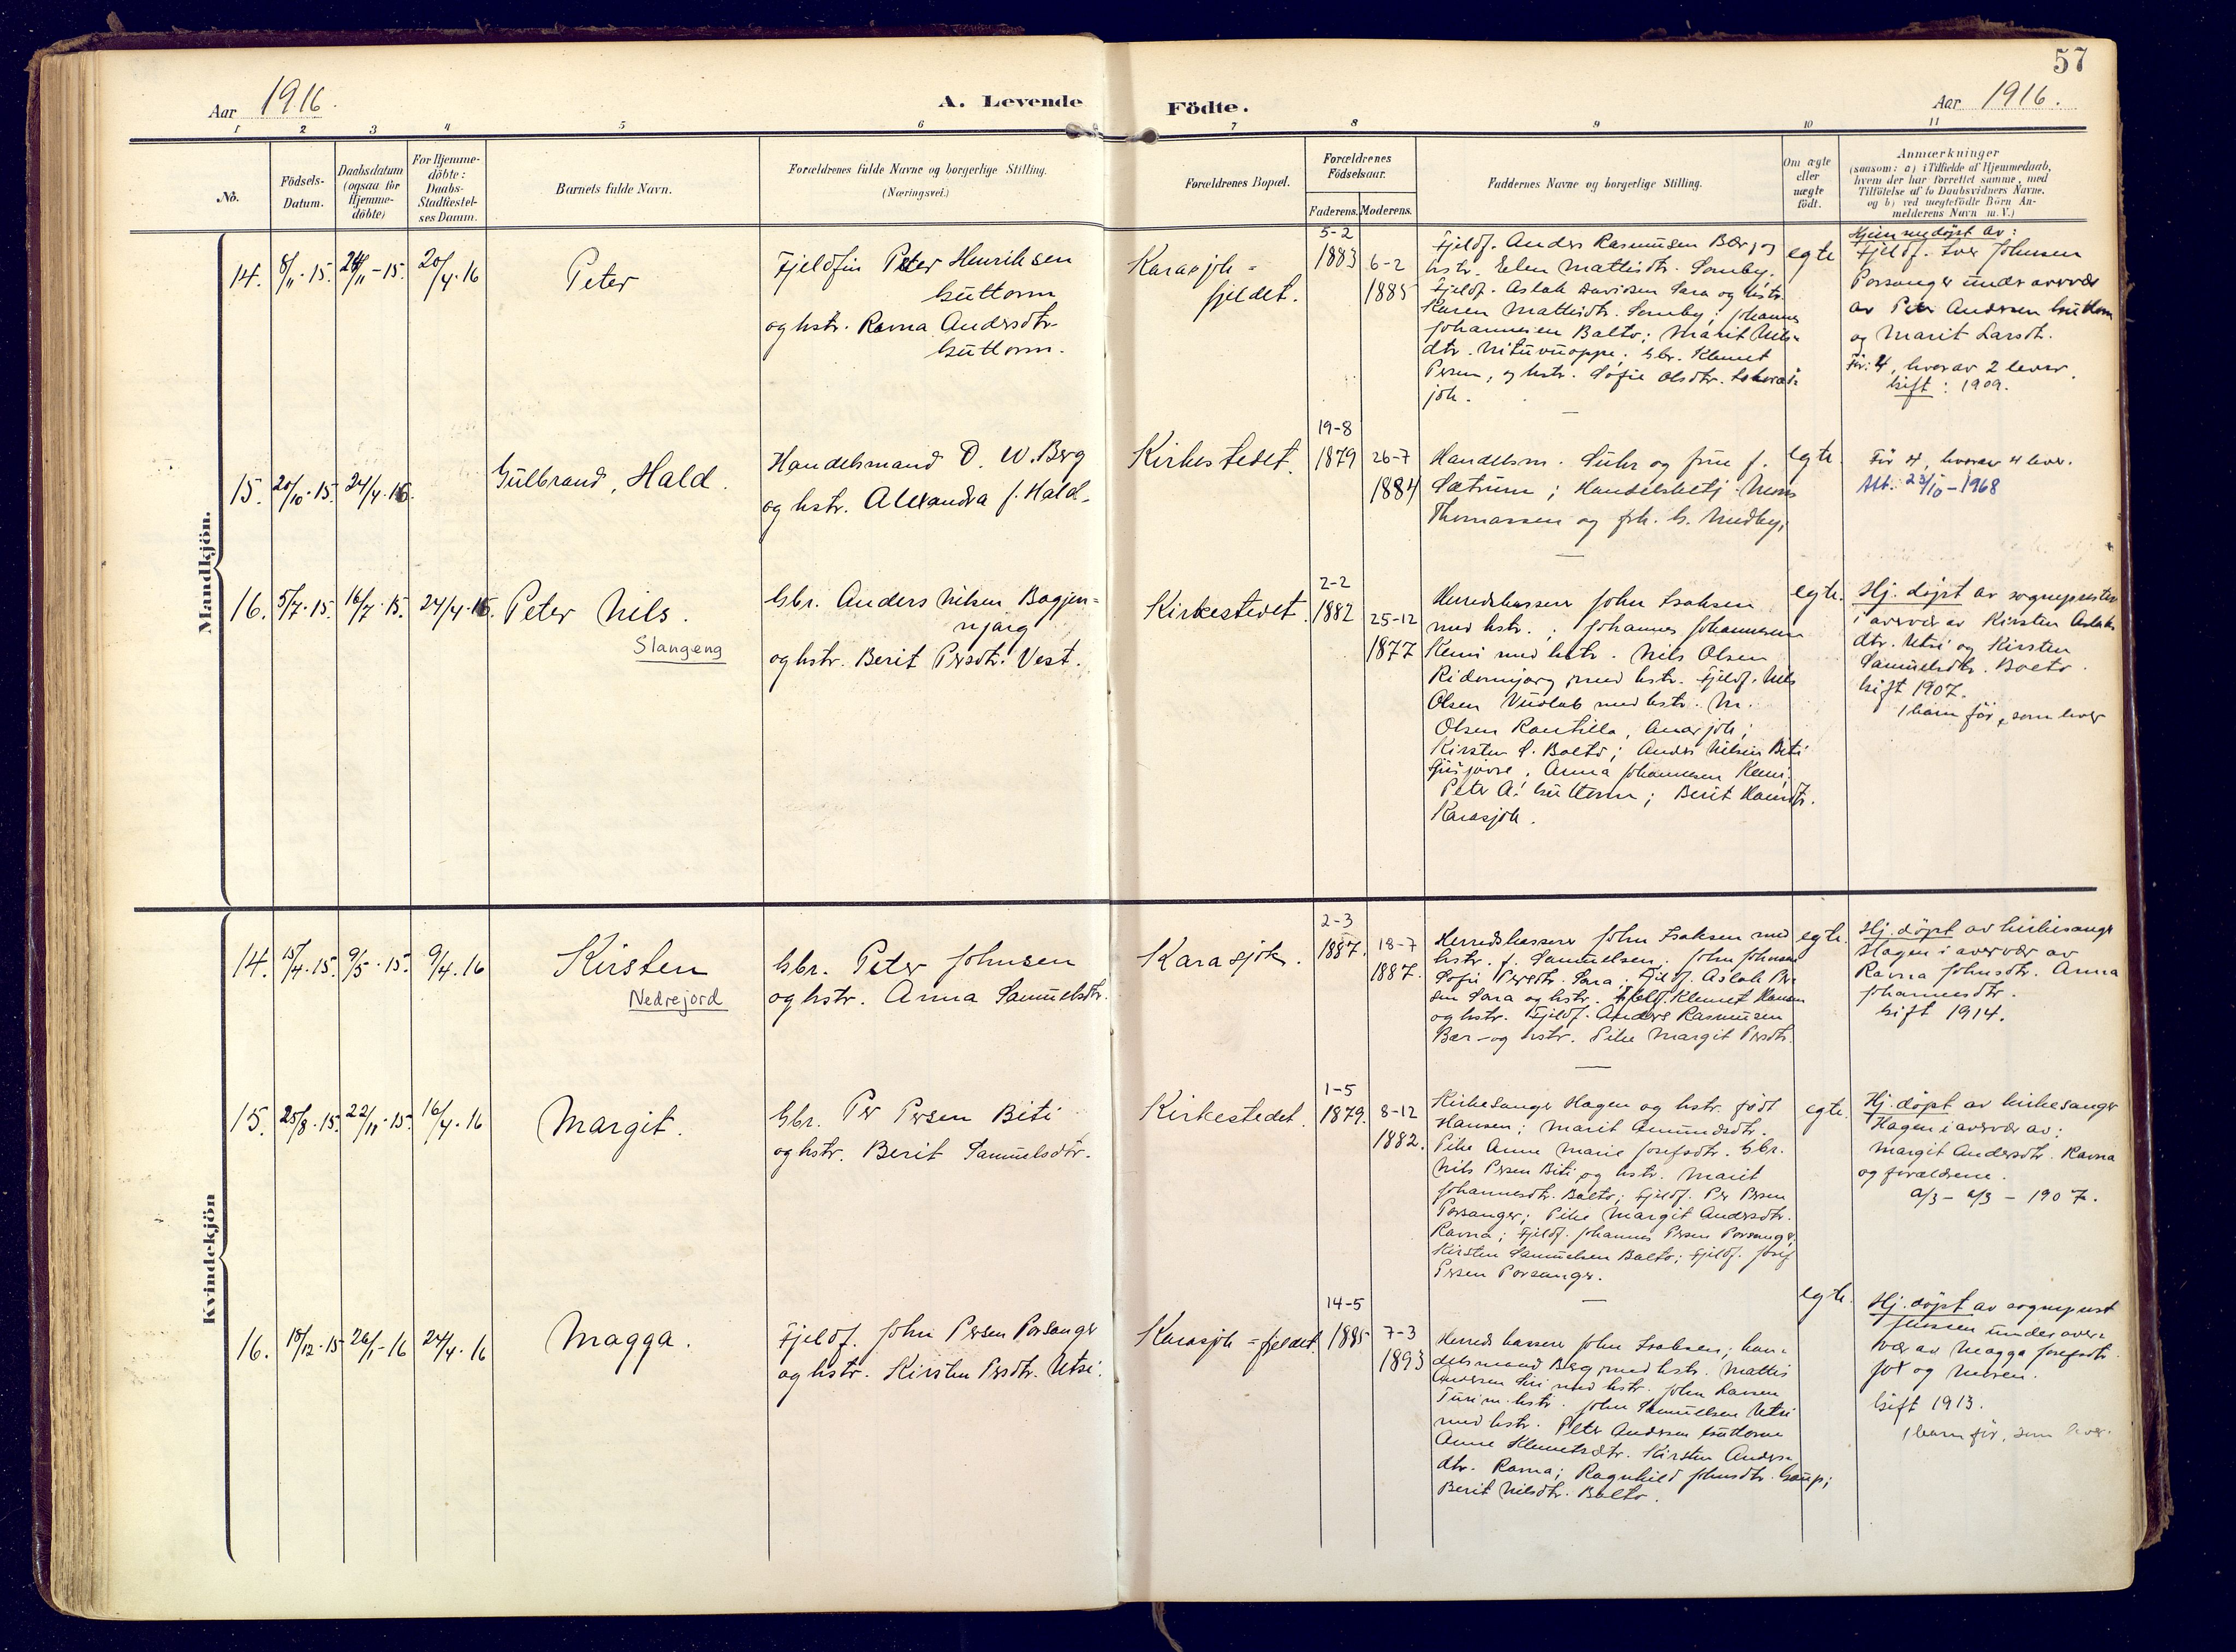 57
Aar 1916.
A. Levende Födte.
Aar 1916.
1 2 3 4 5 6 7 8 9 10 11
No.
Födsels-
Datum.
Daabsdatum
(ogsaa for
Hjemme-
döbte)
For Hjemme-
döbte:
Daabs-
Stadfæstel-
ses Datum.
Barnets fulde Navn.
Forældrenes fulde Navne og borgerlige Stilling.
(Næringsvei.)
Forældrenes Bopæl.
Forældrenes
Födselsaar.
Faderens. Moderens.
Faddernes Navne og borgerlige Stilling.
Om ægte
eller
uægte
födt.
Anmærkninger
(saasom: a) i Tilfælde af Hjemmedaab,
hvem der har forrettet samme, med
Tilföielse af to Daabsvidners Navne.
og b) ved uægtefödte Börn An-
melderens Navn m. V.)
Mandkjön.
14.
8/11-15.
24/11-15.
20/4-16
Peter
Fjeldfin Peter Henriksen
Guttorm
og hstr. Ravna Andersdtr.
Guttorm.
Karasjok=
fjeldet.
5-2
1883
6-2
1885
Fjeldf. Anders Rasmusen Bær og
hstr. Elen Mattisdtr. Somby.
Fjeldf. Aslak Davidsen Sara og hstr.
Karen Mattisdtr. Somby; Johannes
Johannesen Balto; Marit Nils-
dtr. Nituvuoppe; Gbr. Klemet
Persen, og hstr. Sofie Olsdtr.
jok.
egte
Hjemmedøpt av:
Fjeldf. Iver Johnsen
Porsanger under overvær
av Peter Andersen Guttorm
og Marit Larsdtr.
Før: 4, hvorav 2 lever.
Gift: 1909.
15.
20/10-15.
24/4-16.
Gulbrand, Hald.
Handelsmand D. W. Berg
og hstr. Alexandra f. Hald.
Kirkestedet.
19-8
1879
26-7
1884
Handelsm. Suhr og frue f.
Sætrum; Handelsbetj. Mons
Thomassen og frk. G. Medby.
egte.
Før 4, hvorav 4 lever.
Att. 23/10-1968
16.
5/7-15.
16/7-15.
24/4-16.
Peter Nils.
Slangeng
Gbr. Anders Nilsen Bagjen=
njarg
og hstr. Berit Persdtr. Vest.
Kirkestedet.
2-2
1882
25-12
1877
Herredskasserer John Isaksen
med hstr.; Johannes Johannesen
Kemi med hstr. Nils Olsen
Ridonjarg med hstr. Fjeldf. Nils
Olsen Vuolab med hstr. M.
Olsen Rautilla, Anarjok;
Kirsten S. Balto; Anders Nilsen Biti
Anna Johannesen Kemi;
Peter A. Guttorm; Berit
Karasjok.
egte.
Hj. døpt av sogneprsten
i overvær av Kirsten Aslaks
dtr. Utsi og Kirsten
Samuelsdtr. Balto.
Gift 1907.
1 barn før, som lever
Kvindekjön
14.
15/4-15.
9/5-15.
9/4-16
Kirsten
Nedrejord
Gbr. Peter Johnsen
og hstr. Anna Samuelsdtr.
Karasjok.
2-3
1887.
18-7
1887.
Herredskasserer John Isaksen med
hstr. f. Samuelsen. John Johnsen
Sofie Persdtr. Sara; Fjeldf. Aslak Per
sen Sara og hstr. Fjeldf. Klemet Hansen
og hstr. Fjeldf. Anders Rasmusen
Bær-og hstr. Pike Margit Persdtr.
egte.
Hj. døpt av kirkesanger
Hagen i overvær av
Ravna Johnsdtr. Anna
Johannesdtr.
Gift 1914.
15.
25/8-15.
22/11-15.
16/4-16
Margit.
Gbr. Per Persen Biti
og hstr. Berit Samuelsdtr.
Kirkestedet.
1-5
1879.
8-12
1882.
Kirkesanger Hagen og hstr. født
Hansen; Marit Amundsdtr.
Pike Anne Marie Josefsdtr. Gbr.
Nils Persen Biti og hstr. Marit
Johannesdtr. Balto; Fjeldf. Per Persen
Porsanger; Pike Margit Andersdtr.
Ravna; Fjeldf. Johannes Persen Porsanger;
Kirsten Samuelsen Balto; Fjeldf. Josef
Persen Porsanger.
egte.
Hj. døpt av kirkesanger
Hagen i overvær av:
Margit Andersdtr. Ravna
og forældrene.
1907.
16.
18/12-15
26/1-16
24/4-16
Magga.
Fjeldf. John Persen Porsanger
og hstr. Kirsten Persdtr. Utsi.
Karasjok=fjeldet.
14-5
1885
7-3
1893
Herredskasserer John Isaksen; han-
delsmand Berg med hstr. Mattis
Andersen Siri med hstr. John Larsen
Turi m. hstr. John Samuelsen Utsi
med hstr. Peter Andersen Guttorm
Anne Klemetsdtr. Kirsten Anders-
dtr. Ravna; Ragnhild Johnsdtr. Gaup;
Berit Nilsdtr. Balto.
egte.
Hj. døpt av sogneprest
Jenssen under over-
vær av Magga Josefsdtr.
og moren.
Gift 1913.
1 barn før, som lever.